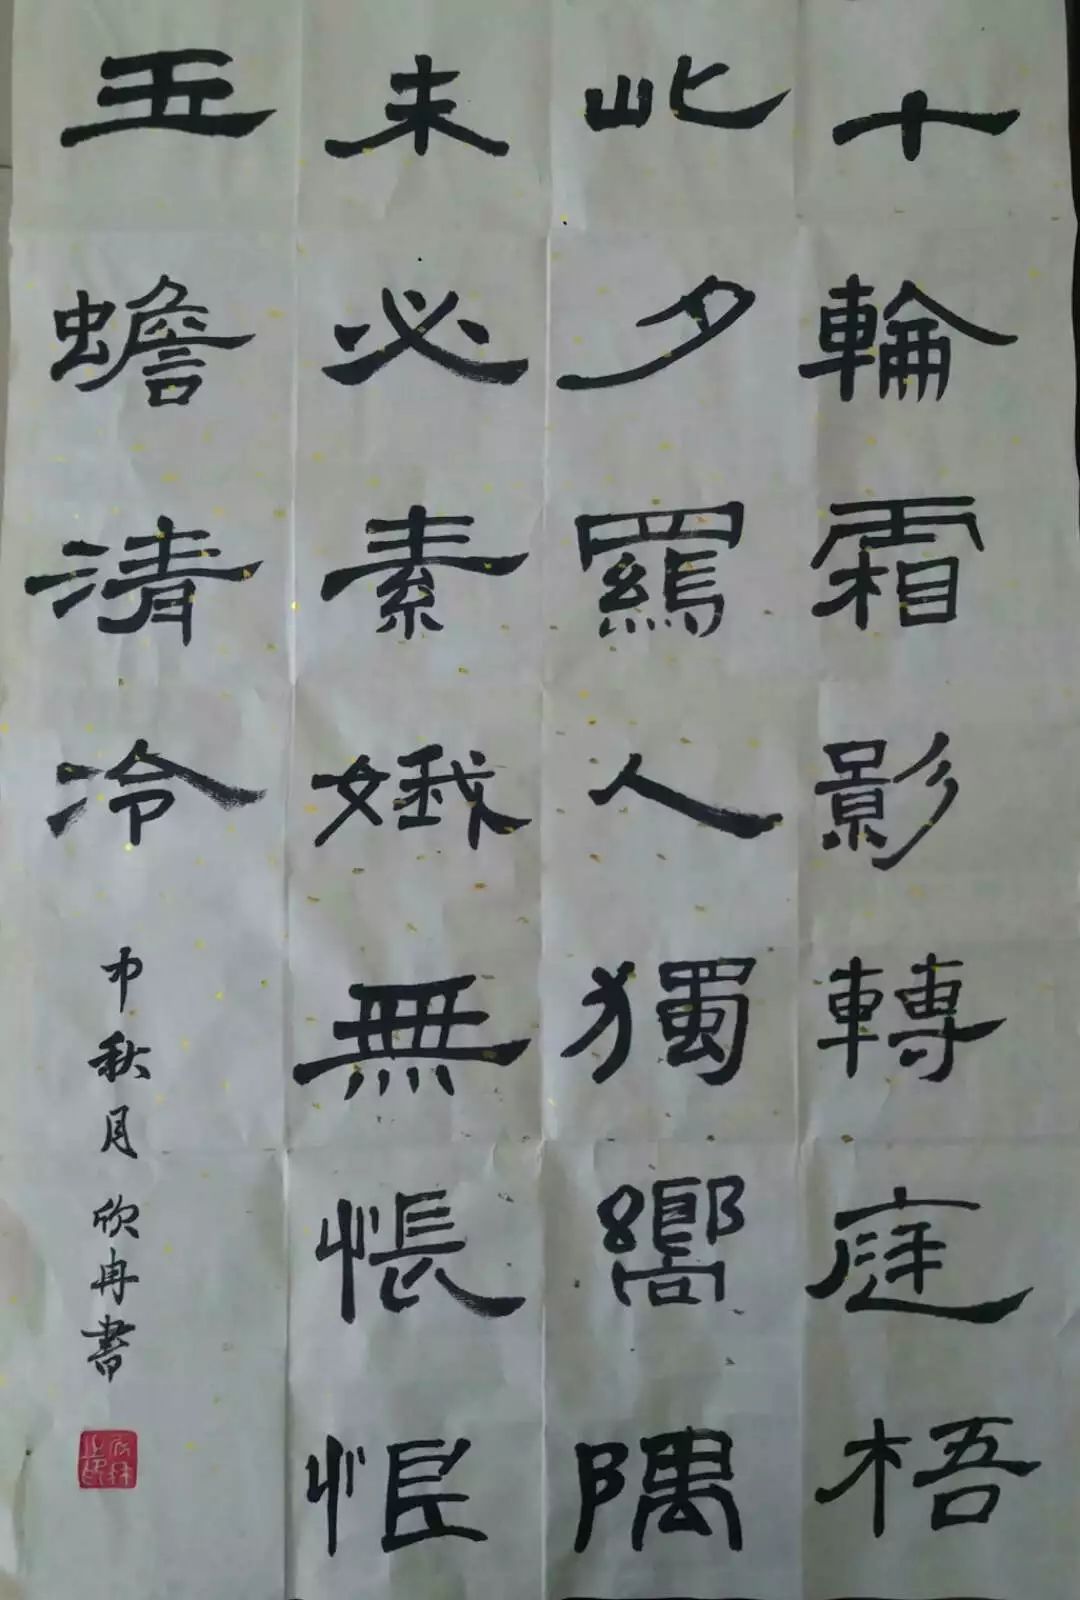 十輪霜影轉庭梧
此夕羈人獨嚮隅
未必素娥無悵恨
玉蟾清冷
中秋月 欣冉書